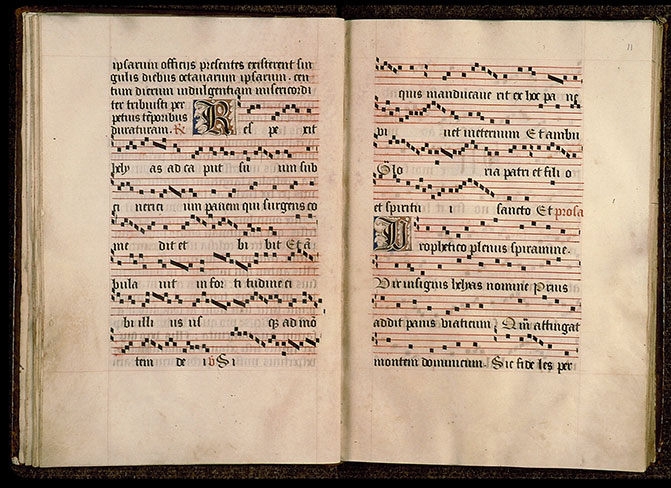 ipsarum officijs presentes existerent sin
gulis diebus octauarum ipsarum . cen
tum dierum indulgentiam misericordi
ter tribuisti per
petuis temporibus
duraturam. R
Res pe xit
hely as ad ca put su um sub
ci nerici um panem qui surgens co
me dit et bi bit Et a
bula uit in for ti tudine ci
bi illi us us q3 ad mo
tem de i v Si
11
quis manducaue rit ex hoc pa ne
ui uet ineternum Et ambu
Glo ria patri et fili o
et spiritu i sancto Et prosa
Prophetico plenus spiramine.
Vir insignis helyas nomine Prius
addit panis viaticum Qm attingat
montem dominicum. Sic fide les per